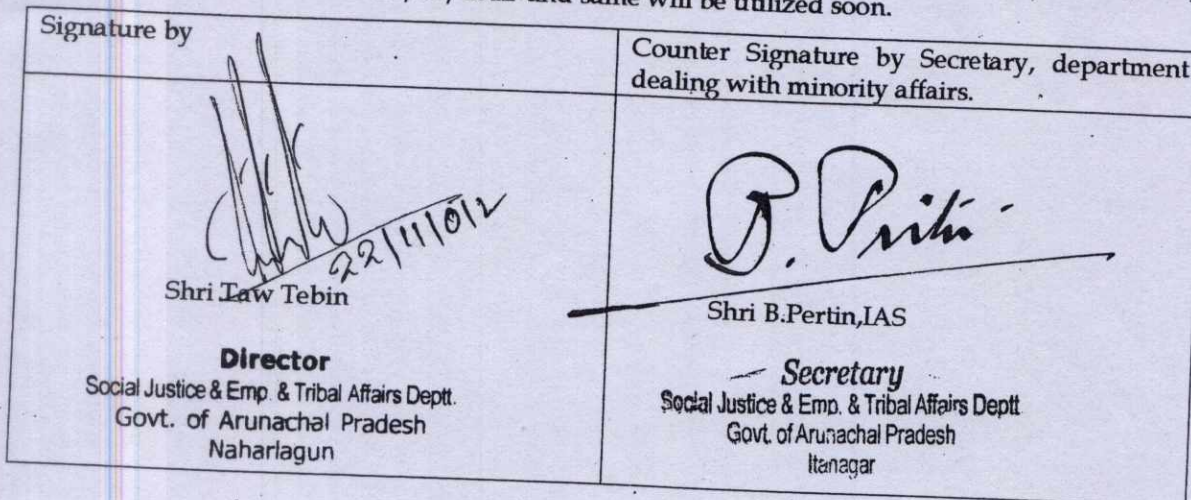 and same will be utilized soon.
Signature by
Counter Signature by Secretary, department
dealing with minority affairs.
22/11/012
Shri Taw Tebin
Director
Social Justice & Emp. & Tribal Affairs Deptt.
Govt. of Arunachal Pradesh
Naharlagun
Shri B.Pertin,IAS
Secretary
Social Justice & Emp. & Tribal Affairs Deptt
Govt. of Arunachal Pradesh
Itanagar